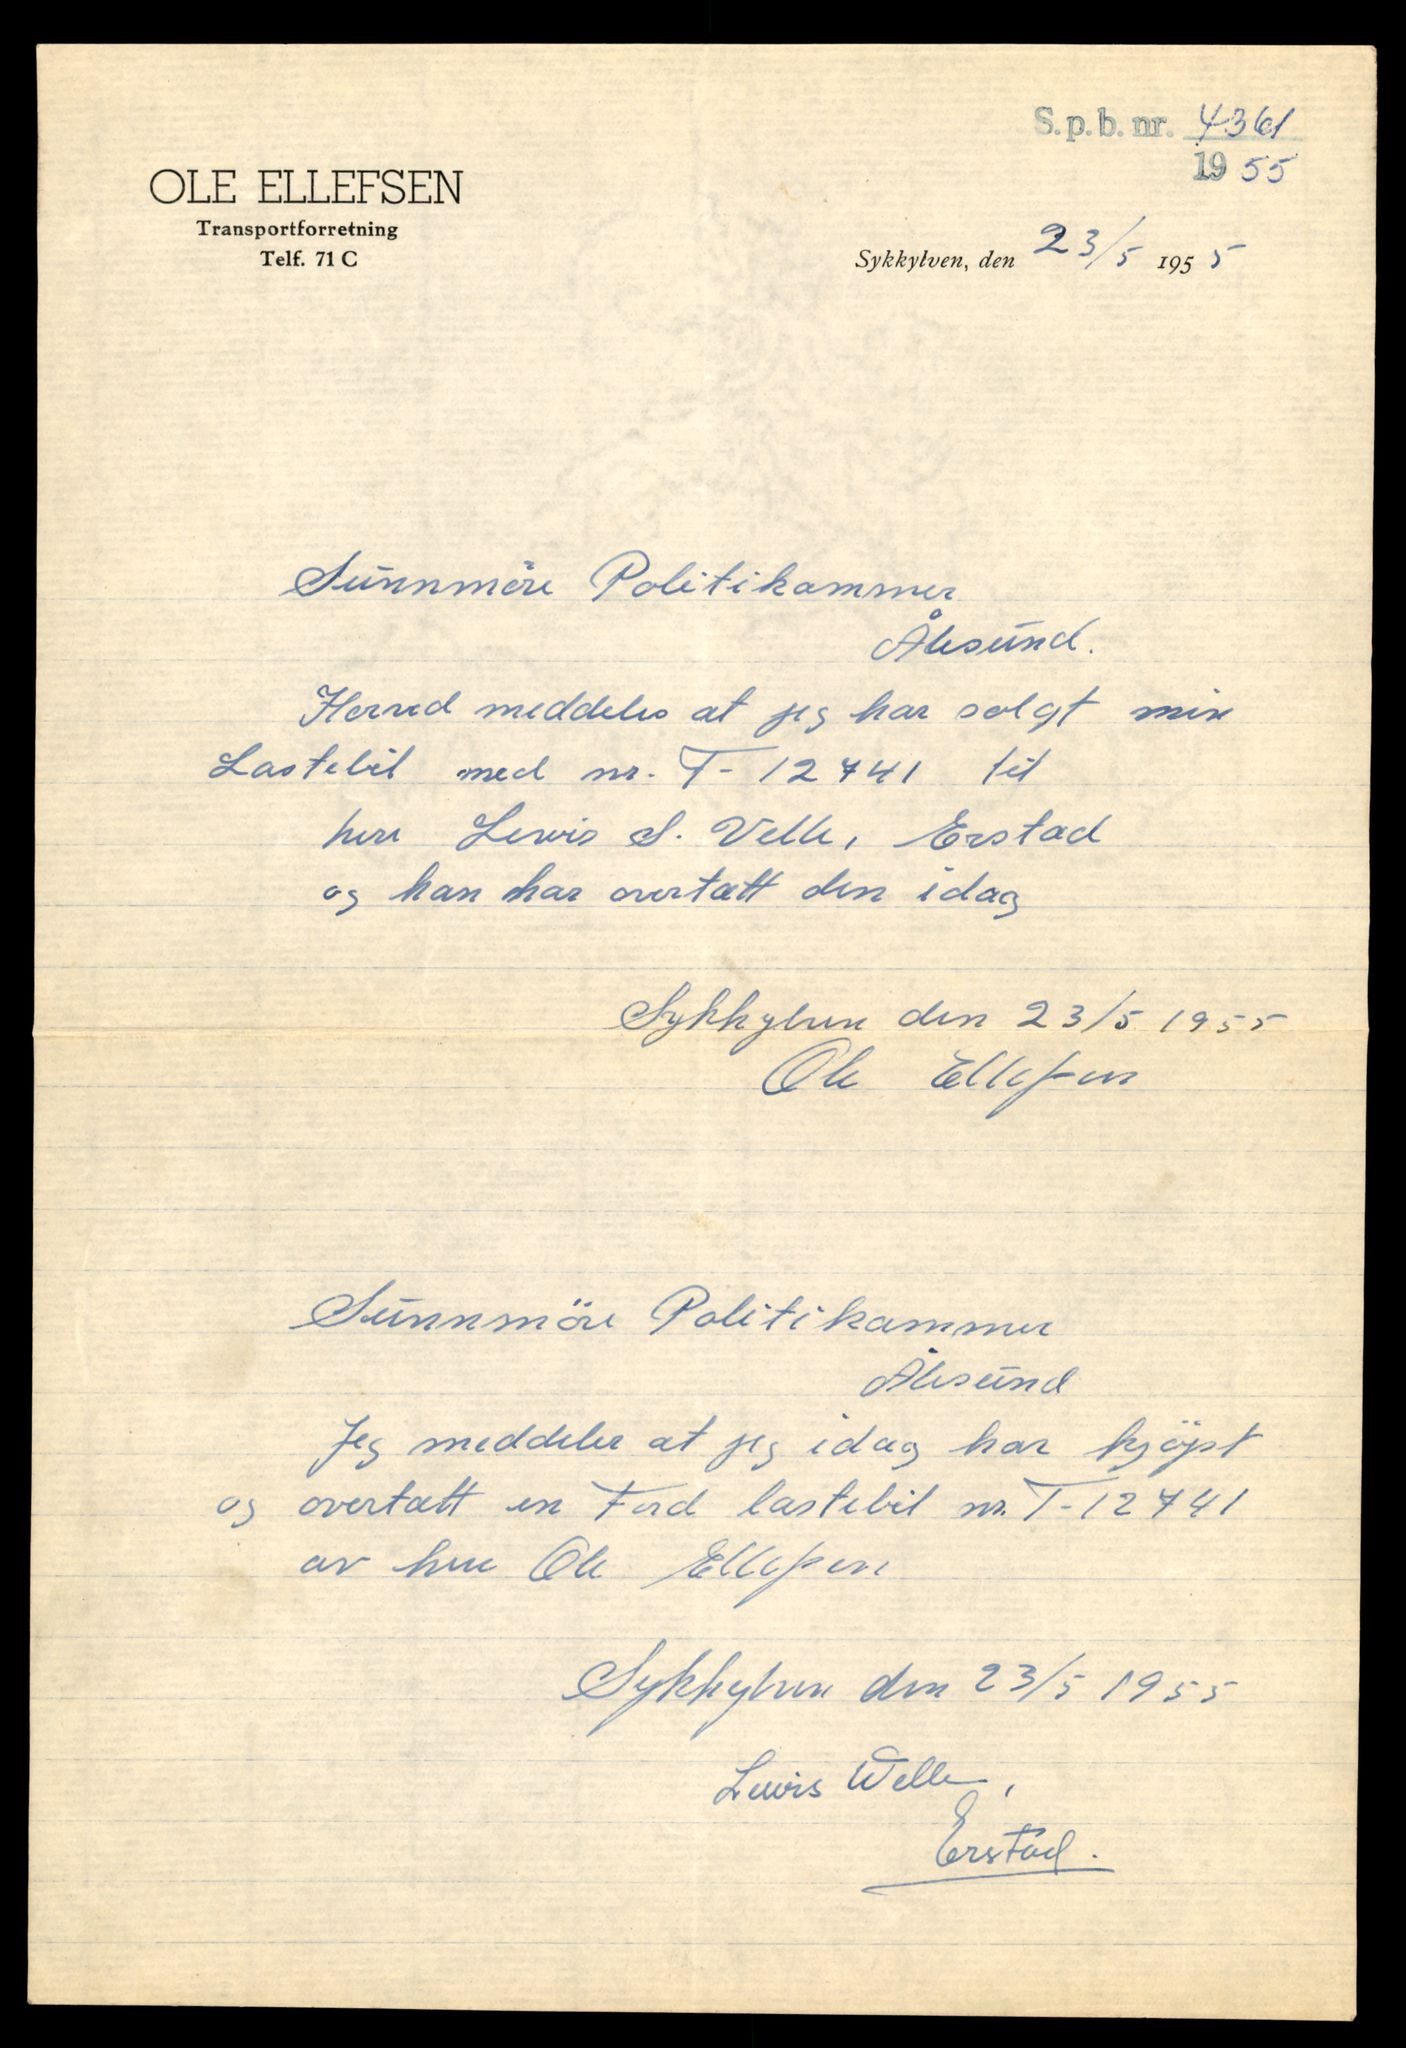 S.p.b. nr. 4361
1955
OLE ELLEFSEN
Transportforretning
Telf. 71 C
Sykkylven, den 23/5 1955
Sunnmöre Politikammer
Ålesund.
Herved meddeles at jeg har solgt min
Lastebil med nr. T-12741 til
herr Lewis S. Velle, Erstad
og han har overtatt den idag
Sykkylven den 23/5 1955
Ole Ellefsen
Sunnmöre Politikammer
Ålesund
Jeg meddeler at jeg idag har kjöpt
og overtatt en Ford lastebil nr. T-12741
av herr Ole Ellefsen
Sykkylven den 23/5 1955
Lewis Welle,
Erstad.